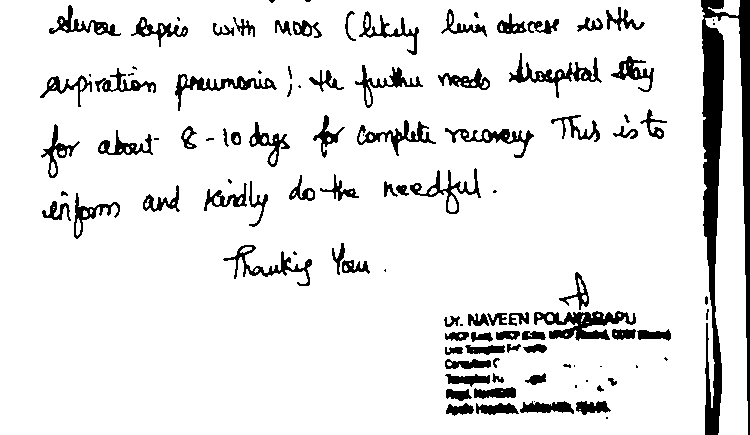 Severe sepsis with MODS (likely liver abscess with
aspiration pneumonia). He further needs Hospital stay
for about 8-10 days for complete recovery This is to
inform and kindly do the needful.
Thanking You.
Dr. NAVEEN POLAVARAPU
Consultant
Transplant
Regd.
Apollo Hospitals, Jubilee Hills,